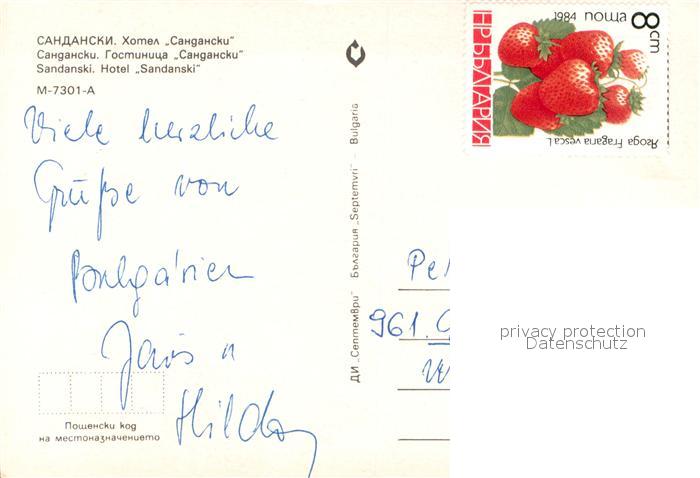 САНДАНСКИ. Хотел „Сандански“
Сандански. Гостиница „Сандански“
Sandanski. Hotel „Sandanski“
М-7301-А
Viele herzliche
Grüße von
Bulgárien
u
Hilda
Пощенски код
на местоназначението
ДИ „Септември“ България „Septemvri“ – Bulgaria
8 cm
поща 1984
НР БЪЛГАРИЯ
Ягода Fragaria vesca L
Pe
961.
privacy protection
Datenschutz